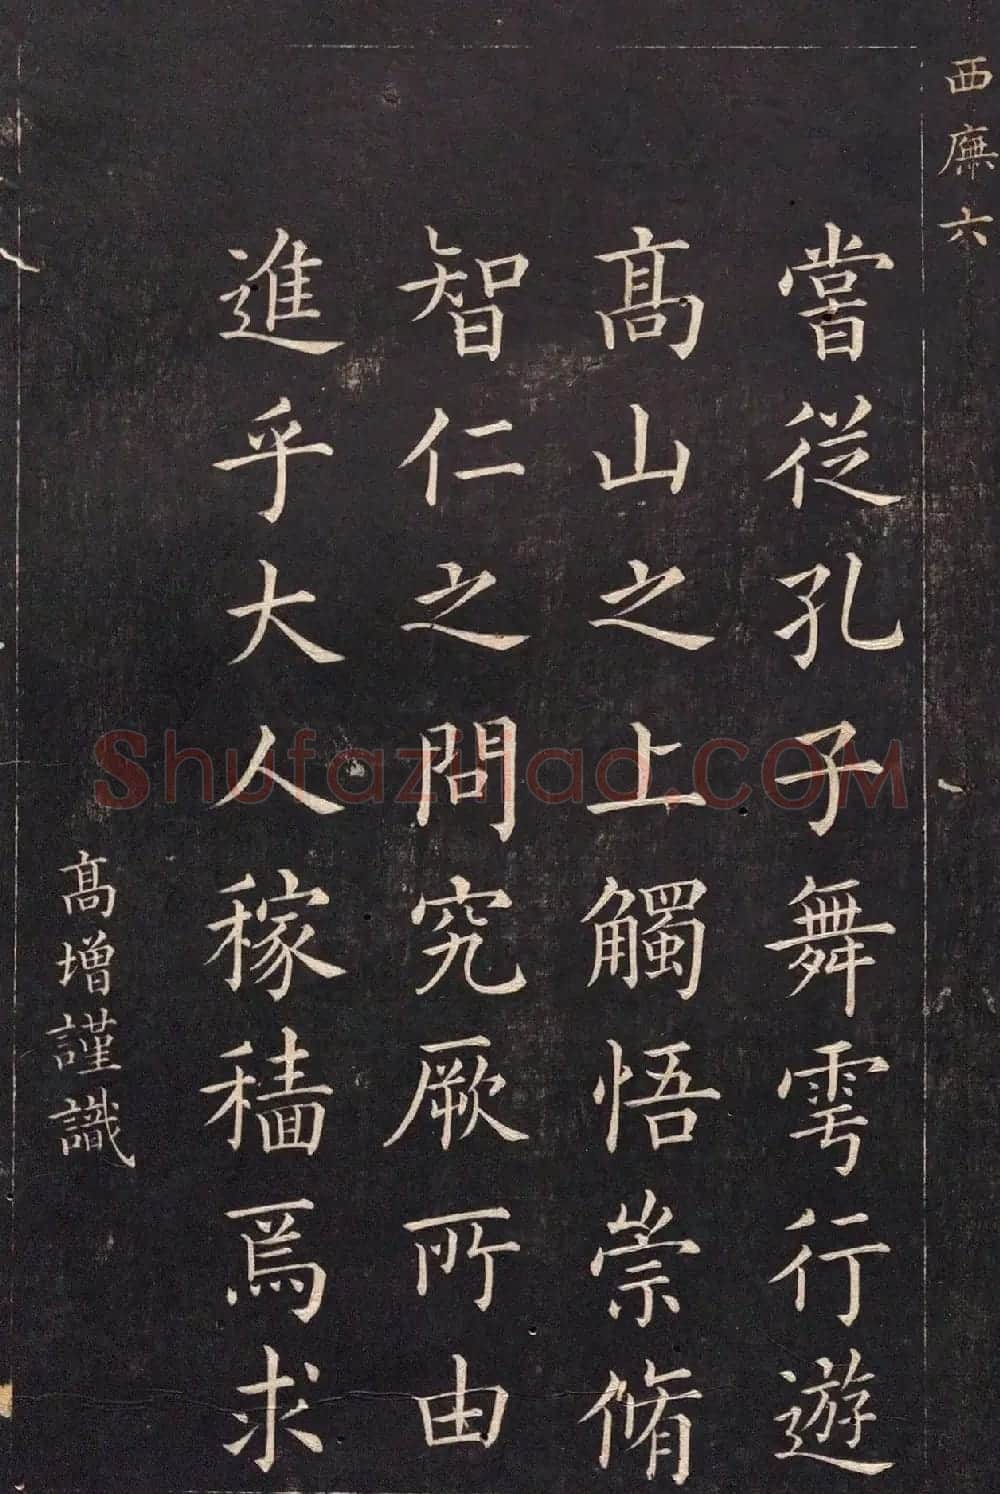 西廡六
嘗從孔子舞雩行遊
髙山之上觸悟崇脩
智仁之問究厥所由
進乎大人稼穡焉求
髙增謹識
Shufaziliao.COM